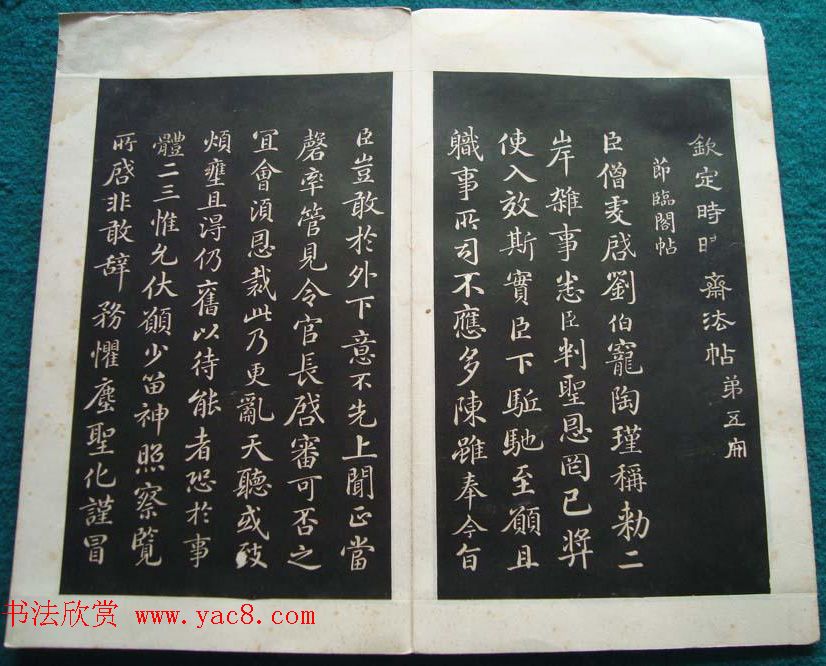 欽定時晴齋法帖第五冊
節臨閣帖
臣僧虔啓劉伯寵陶瑾稱勅二
岸雜事悉臣判聖恩罔已奬
使入效斯實臣下駈馳至願且
職事所司不應多陳雖奉今旨
臣豈敢於外下意不先上聞正當
罄率管見令官長啓審可否之
宜會須恩裁此乃更亂天聽或致
煩壅且淂仍舊以待能者恐於事
體二三惟允伏願少留神照察覽
所啓非敢辞務懼塵聖化謹冒
书法欣赏 www.yac8.com